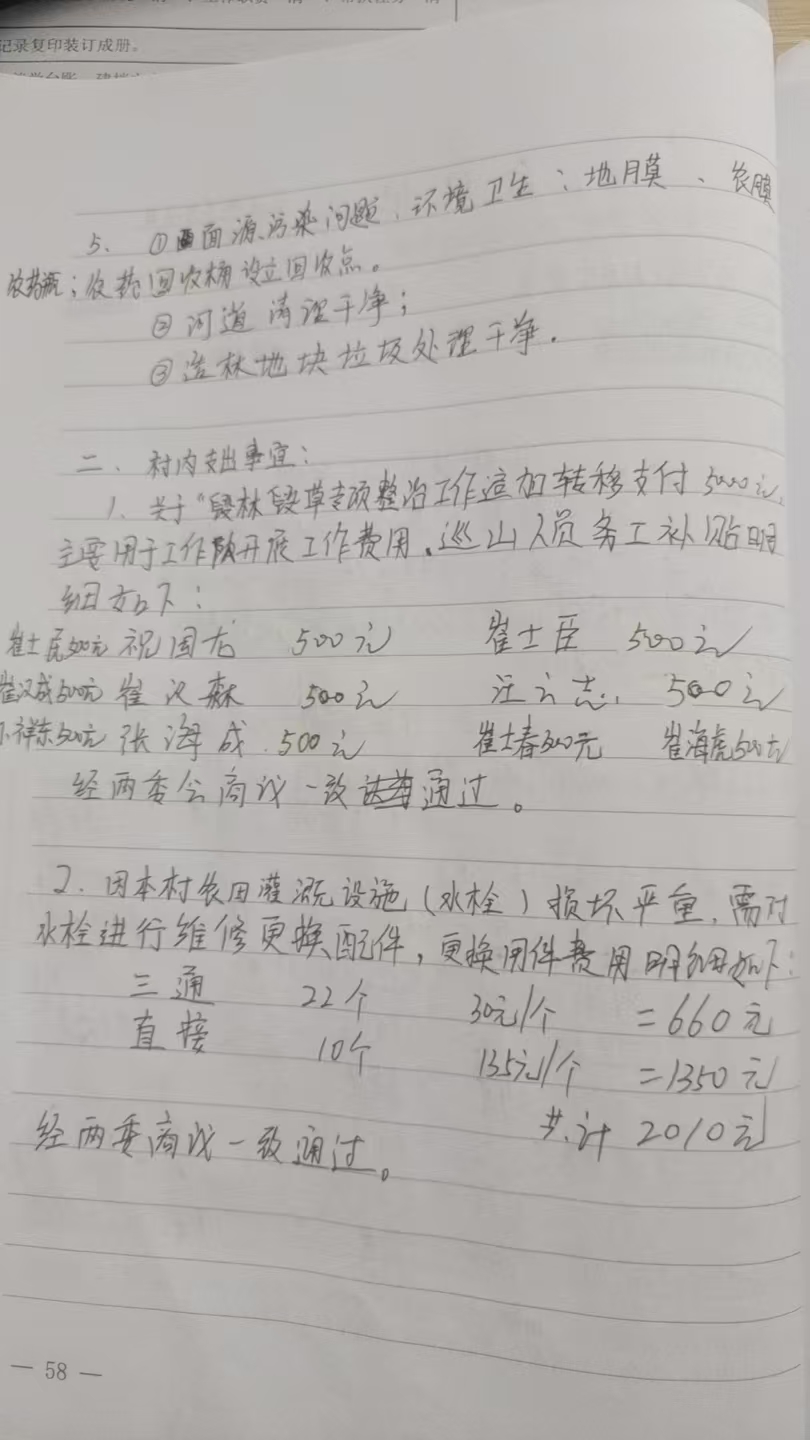 记录复印装订成册。
5、①面源污染问题、环境卫生:地膜、农膜
农药瓶;农药回收桶设立回收点。
②河道清理干净;
③造林地块垃圾处理干净.
二、村内支出事宜:
1、关于“毁林毁草专项整治工作追加转移支付5000元,
主要用于工作队开展工作费用、巡山人员务工补贴明
细如下:
崔士虎500元 祝国有 500元 崔士臣 500元
崔汉成500元 崔汉森 500元 汪云志 500元
祥东500元 张海成 500元 崔士春500元 崔海虎500元
经两委会商议一致通过。
2.因本村农田灌溉设施(水栓)损坏严重,需对
水栓进行维修更换配件,更换用件费用明细如下:
三通 22个 30元/个 =660元
直接 10个 135元/个 =1350元
共计 2010元
经两委商议一致通过。
— 58 —